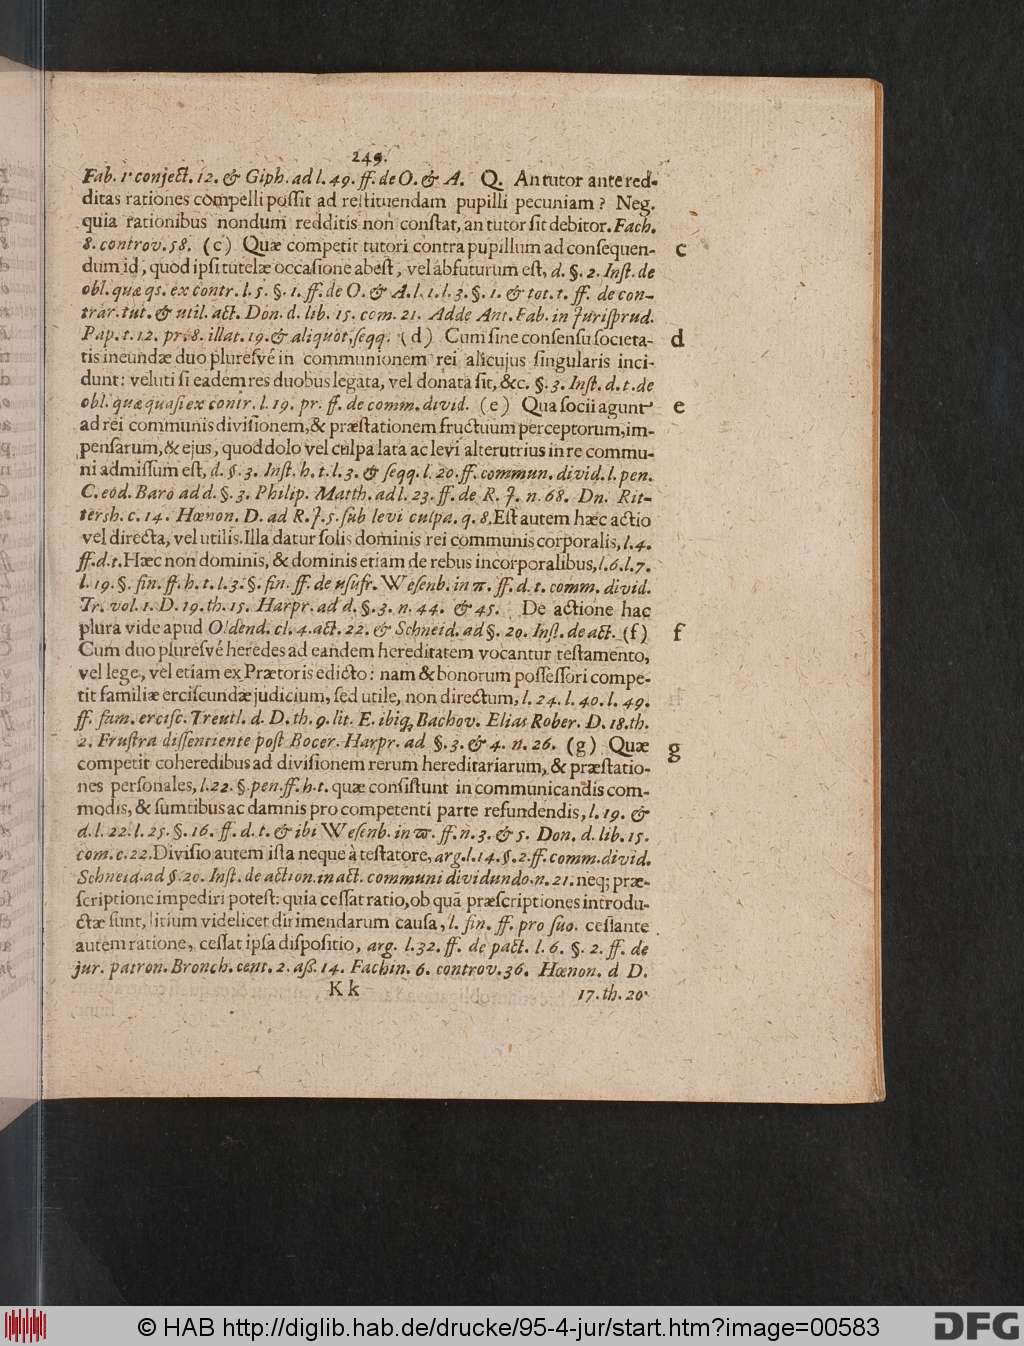 249.
Fab. 1. conject. 12. & Giph. ad l. 49. ff. de O. & A. Q. An tutor ante red-
ditas rationes compelli poſſit ad reſtituendam pupilli pecuniam? Neg.
quia rationibus nondum redditis non conſtat, an tutor ſit debitor. Fach.
8. controv. 58. (c) Quæ competit tutori contra pupillum ad conſequen-
dum id, quod ipſi tutelæ occaſione abeſt, vel abfuturum eſt, d. §. 2. Inſt. de
obl. quæ qs. ex contr. l. 5. §. 1. ff. de O. & A. l. 1. l. 3. §. 1. & tot. t. ff. de con-
trar. tut. & util. act. Don. d. lib. 15. com. 21. Adde Ant. Fab. in Juriſprud.
Pap. t. 12. pr. 8. illat. 19. & aliquot, ſeqq. (d) Cum ſine conſenſu ſocieta-
tis ineundæ duo plureſvé in communionem rei alicujus ſingularis inci-
dunt: veluti ſi eadem res duobus legata, vel donata ſit, &c. §. 3. Inſt. d. t. de
obl. quæ quaſi ex contr. l. 19. pr. ff. de comm. divid. (e) Qua ſocii agunt
ad rei communis diviſionem, & præſtationem fructuum perceptorum, im-
penſarum, & ejus, quod dolo vel culpa lata ac levi alterutrius in re commu-
ni admiſſum eſt, d. §. 3. Inſt. h. t. l. 3. & ſeqq. l. 20. ff. commun. divid. l. pen.
C. eod. Baro ad d. §. 3. Philip. Matth. ad l. 23. ff. de R. J. n. 68. Dn. Rit-
tersh. c. 14. Hœnon. D. ad R. J. 5. ſub levi culpa. q. 8. Eſt autem hæc actio
vel directa, vel utilis. Illa datur ſolis dominis rei communis corporalis, l. 4.
ff. d. t. Hæc non dominis, & dominis etiam de rebus incorporalibus, l. 6. l. 7.
l. 19. §. fin. ff. h. t. l. 3. §. fin. ff. de uſufr. Weſenb. in π. ff. d. t. comm. divid.
Tr. vol. 1. D. 19. th. 15. Harpr. ad d. §. 3. n. 44. & 45. De actione hac
plura vide apud Oldend. cl. 4. act. 22. & Schneid. ad §. 20. Inſt. de act. (f)
Cum duo plureſvé heredes ad eandem hereditatem vocantur teſtamento,
vel lege, vel etiam ex Prætoris edicto: nam & bonorum poſſeſſori compe-
tit familiæ erciſcundæ judicium, ſed utile, non directum, l. 24. l. 40. l. 49.
ff. fam. erciſc. Treutl. d. D. th. 9. lit. E. ibiq; Bachov. Elias Rober. D. 18. th.
2. Fruſtra diſſentiente poſt Bocer. Harpr. ad §. 3. & 4. n. 26. (g) Quæ
competit coheredibus ad diviſionem rerum hereditariarum, & præſtatio-
nes perſonales, l. 22. §. pen. ff. h. t. quæ conſiſtunt in communicandis com-
modis, & ſumtibus ac damnis pro competenti parte refundendis, l. 19. &
d. l. 22. l. 25. §. 16. ff. d. t. & ibi Weſenb. in ϖ. ff. n. 3. & 5. Don. d. lib. 15.
com. c. 22. Diviſio autem iſta neque à teſtatore, arg. l. 14. §. 2. ff. comm. divid.
Schneid. ad §. 20. Inſt. de action. in act. communi dividundo. n. 21. neq; præ-
ſcriptione impediri poteſt: quia ceſſat ratio, ob quã præſcriptiones introdu-
ctæ ſunt, litium videlicet dirimendarum cauſa, l. fin. ff. pro ſuo. ceſſante
autem ratione, ceſſat ipſa diſpoſitio, arg. l. 32. ff. de pact. l. 6. §. 2. ff. de
jur. patron. Bronch. cent. 2. aß. 14. Fachin. 6. controv. 36. Hœnon. d D.
K k 17. th. 20.
c
d
e
f
g
© HAB http://diglib.hab.de/drucke/95-4-jur/start.htm?image=00583
DFG